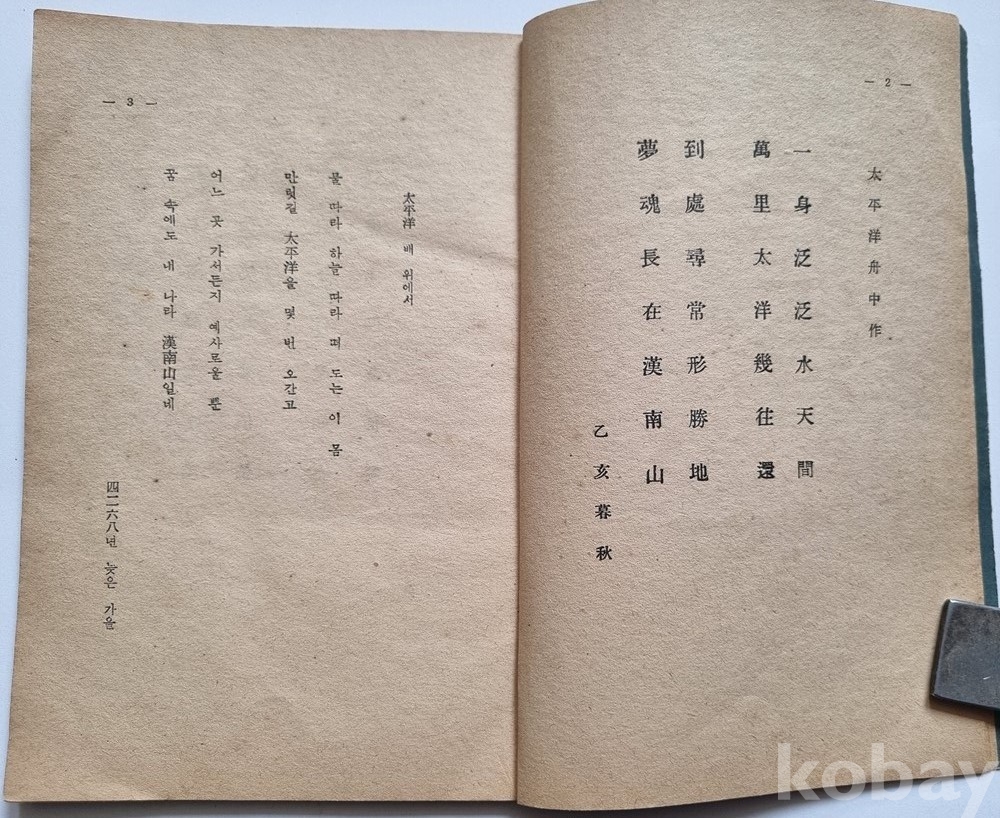 — 2 —
太平洋舟中作
一身泛泛水天間
萬里太洋幾往還
到處尋常形勝地
夢魂長在漢南山
乙亥暮秋
— 3 —
太平洋 배 위에서
물 따라 하늘 따라 떠 도는 이 몸
만릿길 太平洋을 몇 번 오간고
어느 곳 가서든지 예사로울 뿐
꿈 속에도 내 나라 漢南山일네
四二六八년 늦은 가을
kobay